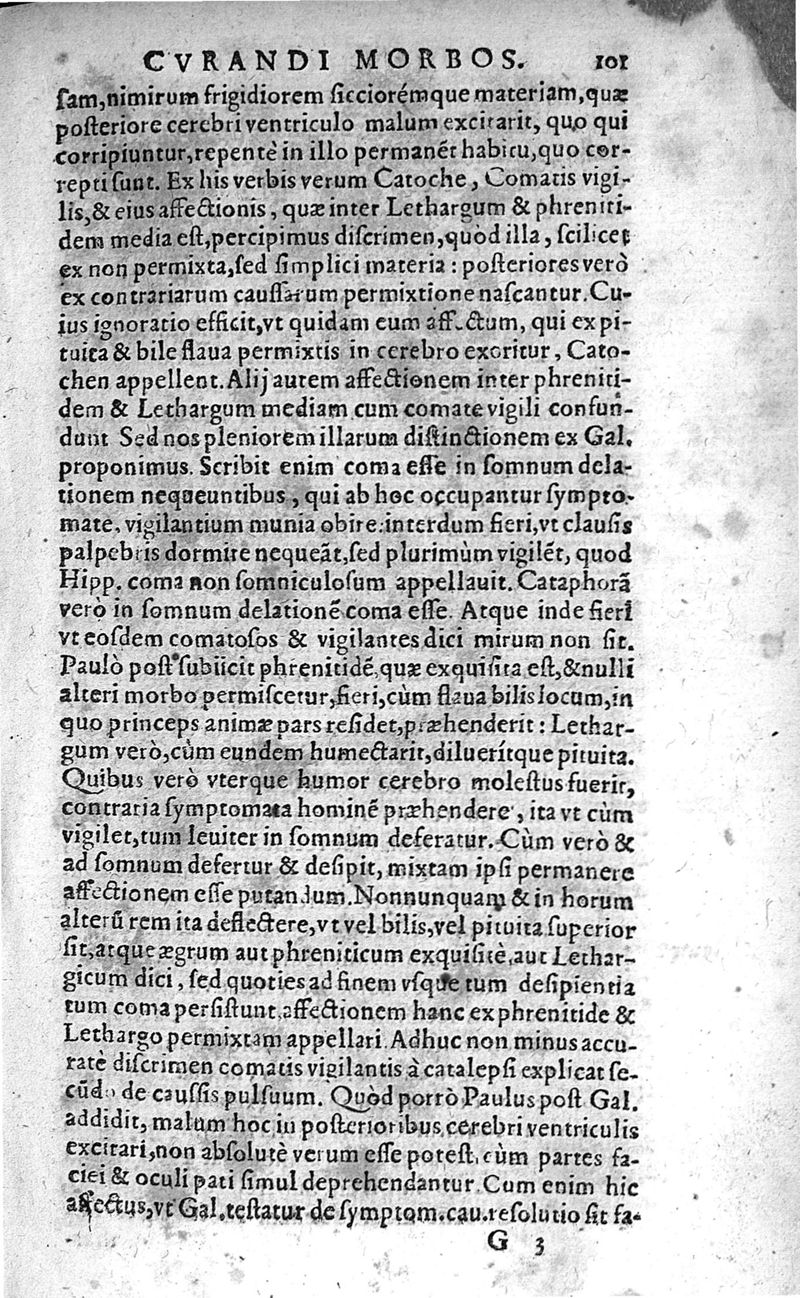 CVRANDI MORBOS. 101
ſam,nimirum frigidiorem ſicciorémque materiam,quæ
poſteriore cerebri ventriculo malum excitarit, quo qui
corripiuntur,repentè in illo permanẽt habitu,quo cor-
repti ſunt. Ex his verbis verum Catoche, Comatis vigi-
lis,& eius affectionis, quæ inter Lethargum & phreniti-
dem media eſt,percipimus diſcrimen,quòd illa, ſcilicet
ex non permixta,ſed ſimplici materia : poſteriores verò
ex contrariarum cauſſarum permixtione naſcantur. Cu-
ius ignoratio efficit,vt quidam eum affectum, qui ex pi-
tuita & bile flaua permixtis in cerebro exoritur, Cato-
chen appellent. Alij autem affectionem inter phreniti-
dem & Lethargum mediam cum comate vigili confun-
dunt Sed nos pleniorem illarum diſtinctionem ex Gal.
proponimus. Scribit enim coma eſſe in ſomnum dela-
tionem nequeuntibus, qui ab hoc occupantur ſympto-
mate, vigilantium munia obire:interdum fieri,vt clauſis
palpebris dormire nequeãt,ſed plurimùm vigilẽt, quod
Hipp. coma non ſomniculoſum appellauit. Cataphorã
verò in ſomnum delationẽ coma eſſe. Atque inde fieri
vt eoſdem comatoſos & vigilantes dici mirum non ſit.
Paulò poſt ſubiicit phrenitidẽ,quæ exquiſita eſt,& nulli
alteri morbo permiſcetur,fieri,cùm flaua bilis locum,in
quo princeps animæ pars reſidet,præhenderit : Lethar-
gum verò,cùm eundem humectarit,diluerítque pituita.
Quibus verò vterque humor cerebro moleſtus fuerit,
contraria ſymptomata hominẽ præhendere, ita vt cùm
vigilet,tum leuiter in ſomnum deferatur. Cùm verò &
ad ſomnum defertur & deſipit, mixtam ipſi permanere
affectionem eſſe putandum. Nonnunquam & in horum
alterũ rem ita deflectere,vt vel bilis,vel pituita ſuperior
ſit,atque ægrum aut phreniticum exquiſitè,aut Lethar-
gicum dici, ſed quoties ad finem vſque tum deſipientia
tum coma perſiſtunt,affectionem hanc ex phrenitide &
Lethargo permixtam appellari. Adhuc non minus accu-
ratè diſcrimen comatis vigilantis à catalepſi explicat ſe-
cũdo de cauſſis pulſuum. Quòd porrò Paulus poſt Gal.
addidit, malum hoc in poſterioribus cerebri ventriculis
excitari,non abſolutè verum eſſe poteſt, cùm partes fa-
ciei & oculi pati ſimul deprehendantur. Cum enim hic
affectus,vt Gal.teſtatur de ſymptom.cau.reſolutio ſit fa-
G 3